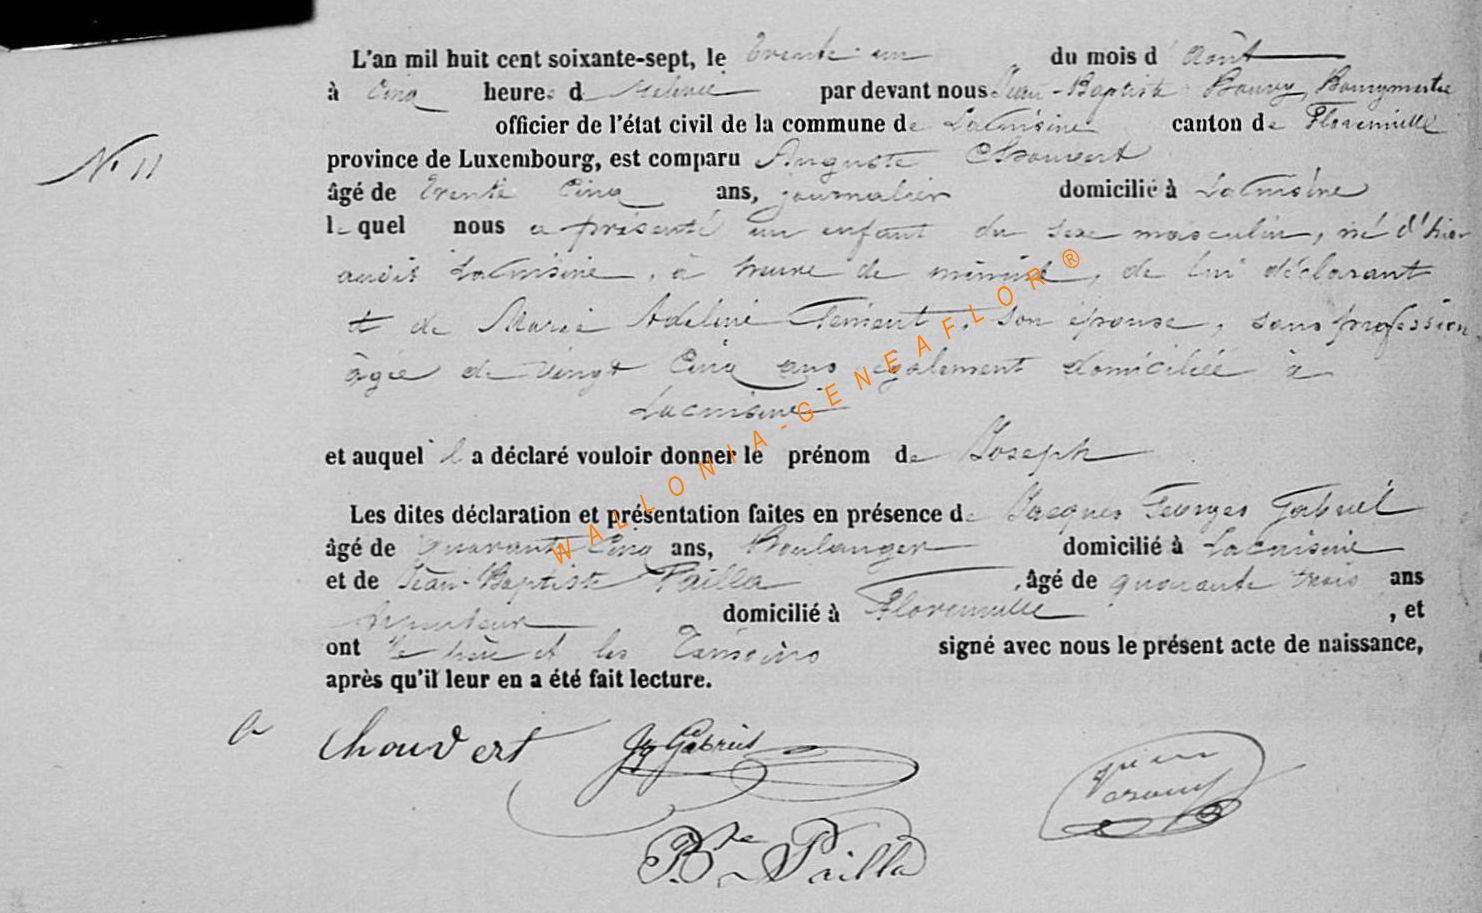 L'an mil huit cent soixante-sept, le trente un du mois d'Août
à Cinq heures de Relevée par devant nous Jean-Baptiste Bourgmestre
officier de l'état civil de la commune de Lacuisine canton de Florenville
N° 11
province de Luxembourg, est comparu Auguste Chouvert
âgé de trente Cinq ans, journalier domicilié à Lacuisine
lequel nous a présenté un enfant du sexe masculin, né d'hier
audit Lacuisine, à heure de de lui déclarant
et de Marie Adeline son épouse, sans profession
âgée de vingt Cinq ans également domiciliée à
Lacuisine
et auquel il a déclaré vouloir donner le prénom de Joseph
Les dites déclaration et présentation faites en présence de Jacques Georges Gabriel
âgé de quarante Cinq ans, Boulanger domicilié à Lacuisine
et de Jean-Baptiste Pailla, âgé de quarante trois ans
domicilié à Florenville, et
ont le père et les Témoins signé avec nous le présent acte de naissance,
après qu'il leur en a été fait lecture.
a Chouvert Gabriel
Bte Pailla
WALLONIA-GENEAFLOR ®